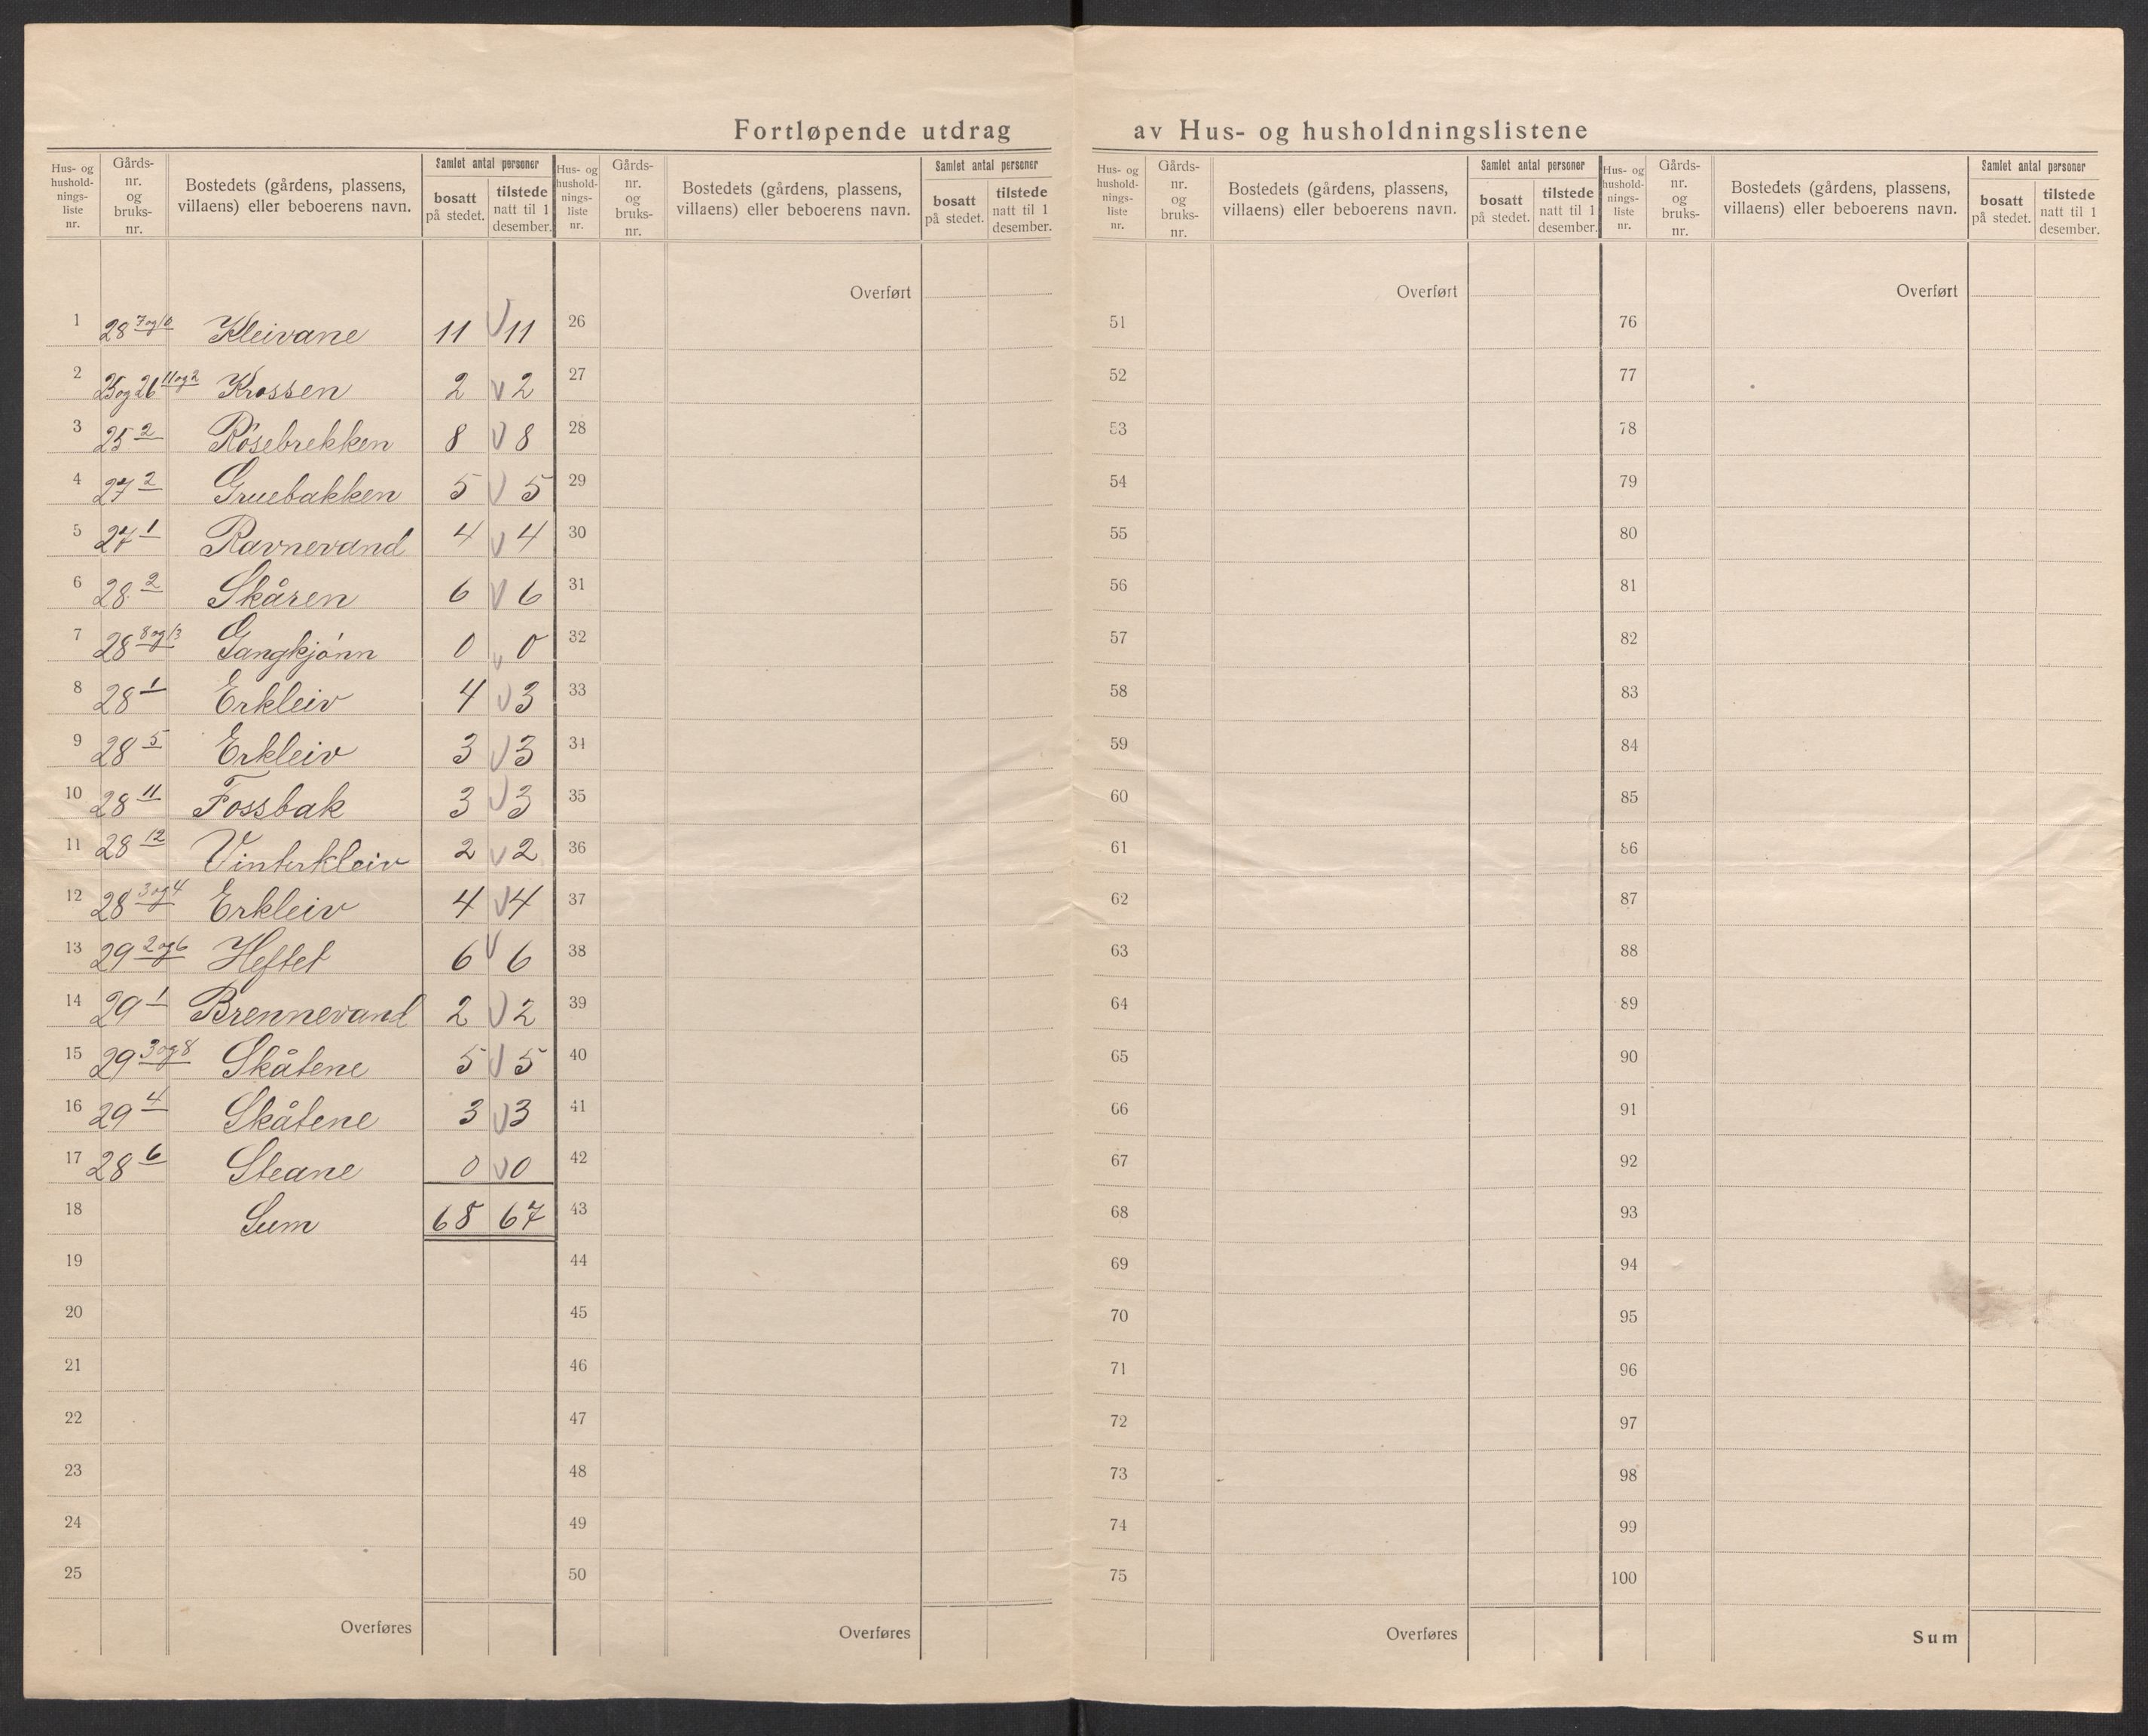 Fortløpende utdrag av Hus- og husholdningslistene
Hus- og hushold- nings- liste nr. | Gårds- nr. og bruks- nr. | Bostedets (gårdens, plassens, villaens) eller beboerens navn. | Samlet antal personer | bosatt på stedet. | tilstede natt til 1 desember.
1 28 7og10 Kleivane 11 V 11
2 25og26 11og2 Krossen 2 V 2
3 25 2 Rósebrekken 8 V 8
4 27 2 Gruebakken 5 V 5
5 27 1 Ravnevand 4 V 4
6 28 2 Skåren 6 V 6
7 28 8og13 Gangkjónn 0 V 0
8 28 1 Erkleiv 4 V 3
9 28 5 Erkleiv 3 V 3
10 28 11 Fossbak 3 V 3
11 28 12 Vinterkleiv 2 V 2
12 28 3og4 Erkleiv 4 V 4
13 29 2og6 Heftet 6 V 6
14 29 1 Brennevand 2 V 2
15 29 3og8 Skåtene 5 V 5
16 29 4 Skåtene 3 V 3
17 28 6 Steane 0 V 0
18 Sum 68 67
19
20
21
22
23
24
25
Overføres
Hus- og hushold- nings- liste nr. | Gårds- nr. og bruks- nr. | Bostedets (gårdens, plassens, villaens) eller beboerens navn. | Samlet antal personer | bosatt på stedet. | tilstede natt til 1 desember.
Overført
26
27
28
29
30
31
32
33
34
35
36
37
38
39
40
41
42
43
44
45
46
47
48
49
50
Overføres
Hus- og hushold- nings- liste nr. | Gårds- nr. og bruks- nr. | Bostedets (gårdens, plassens, villaens) eller beboerens navn. | Samlet antal personer | bosatt på stedet. | tilstede natt til 1 desember.
Overført
51
52
53
54
55
56
57
58
59
60
61
62
63
64
65
66
67
68
69
70
71
72
73
74
75
Overføres
Hus- og hushold- nings- liste nr. | Gårds- nr. og bruks- nr. | Bostedets (gårdens, plassens, villaens) eller beboerens navn. | Samlet antal personer | bosatt på stedet. | tilstede natt til 1 desember.
Overført
76
77
78
79
80
81
82
83
84
85
86
87
88
89
90
91
92
93
94
95
96
97
98
99
100
Sum